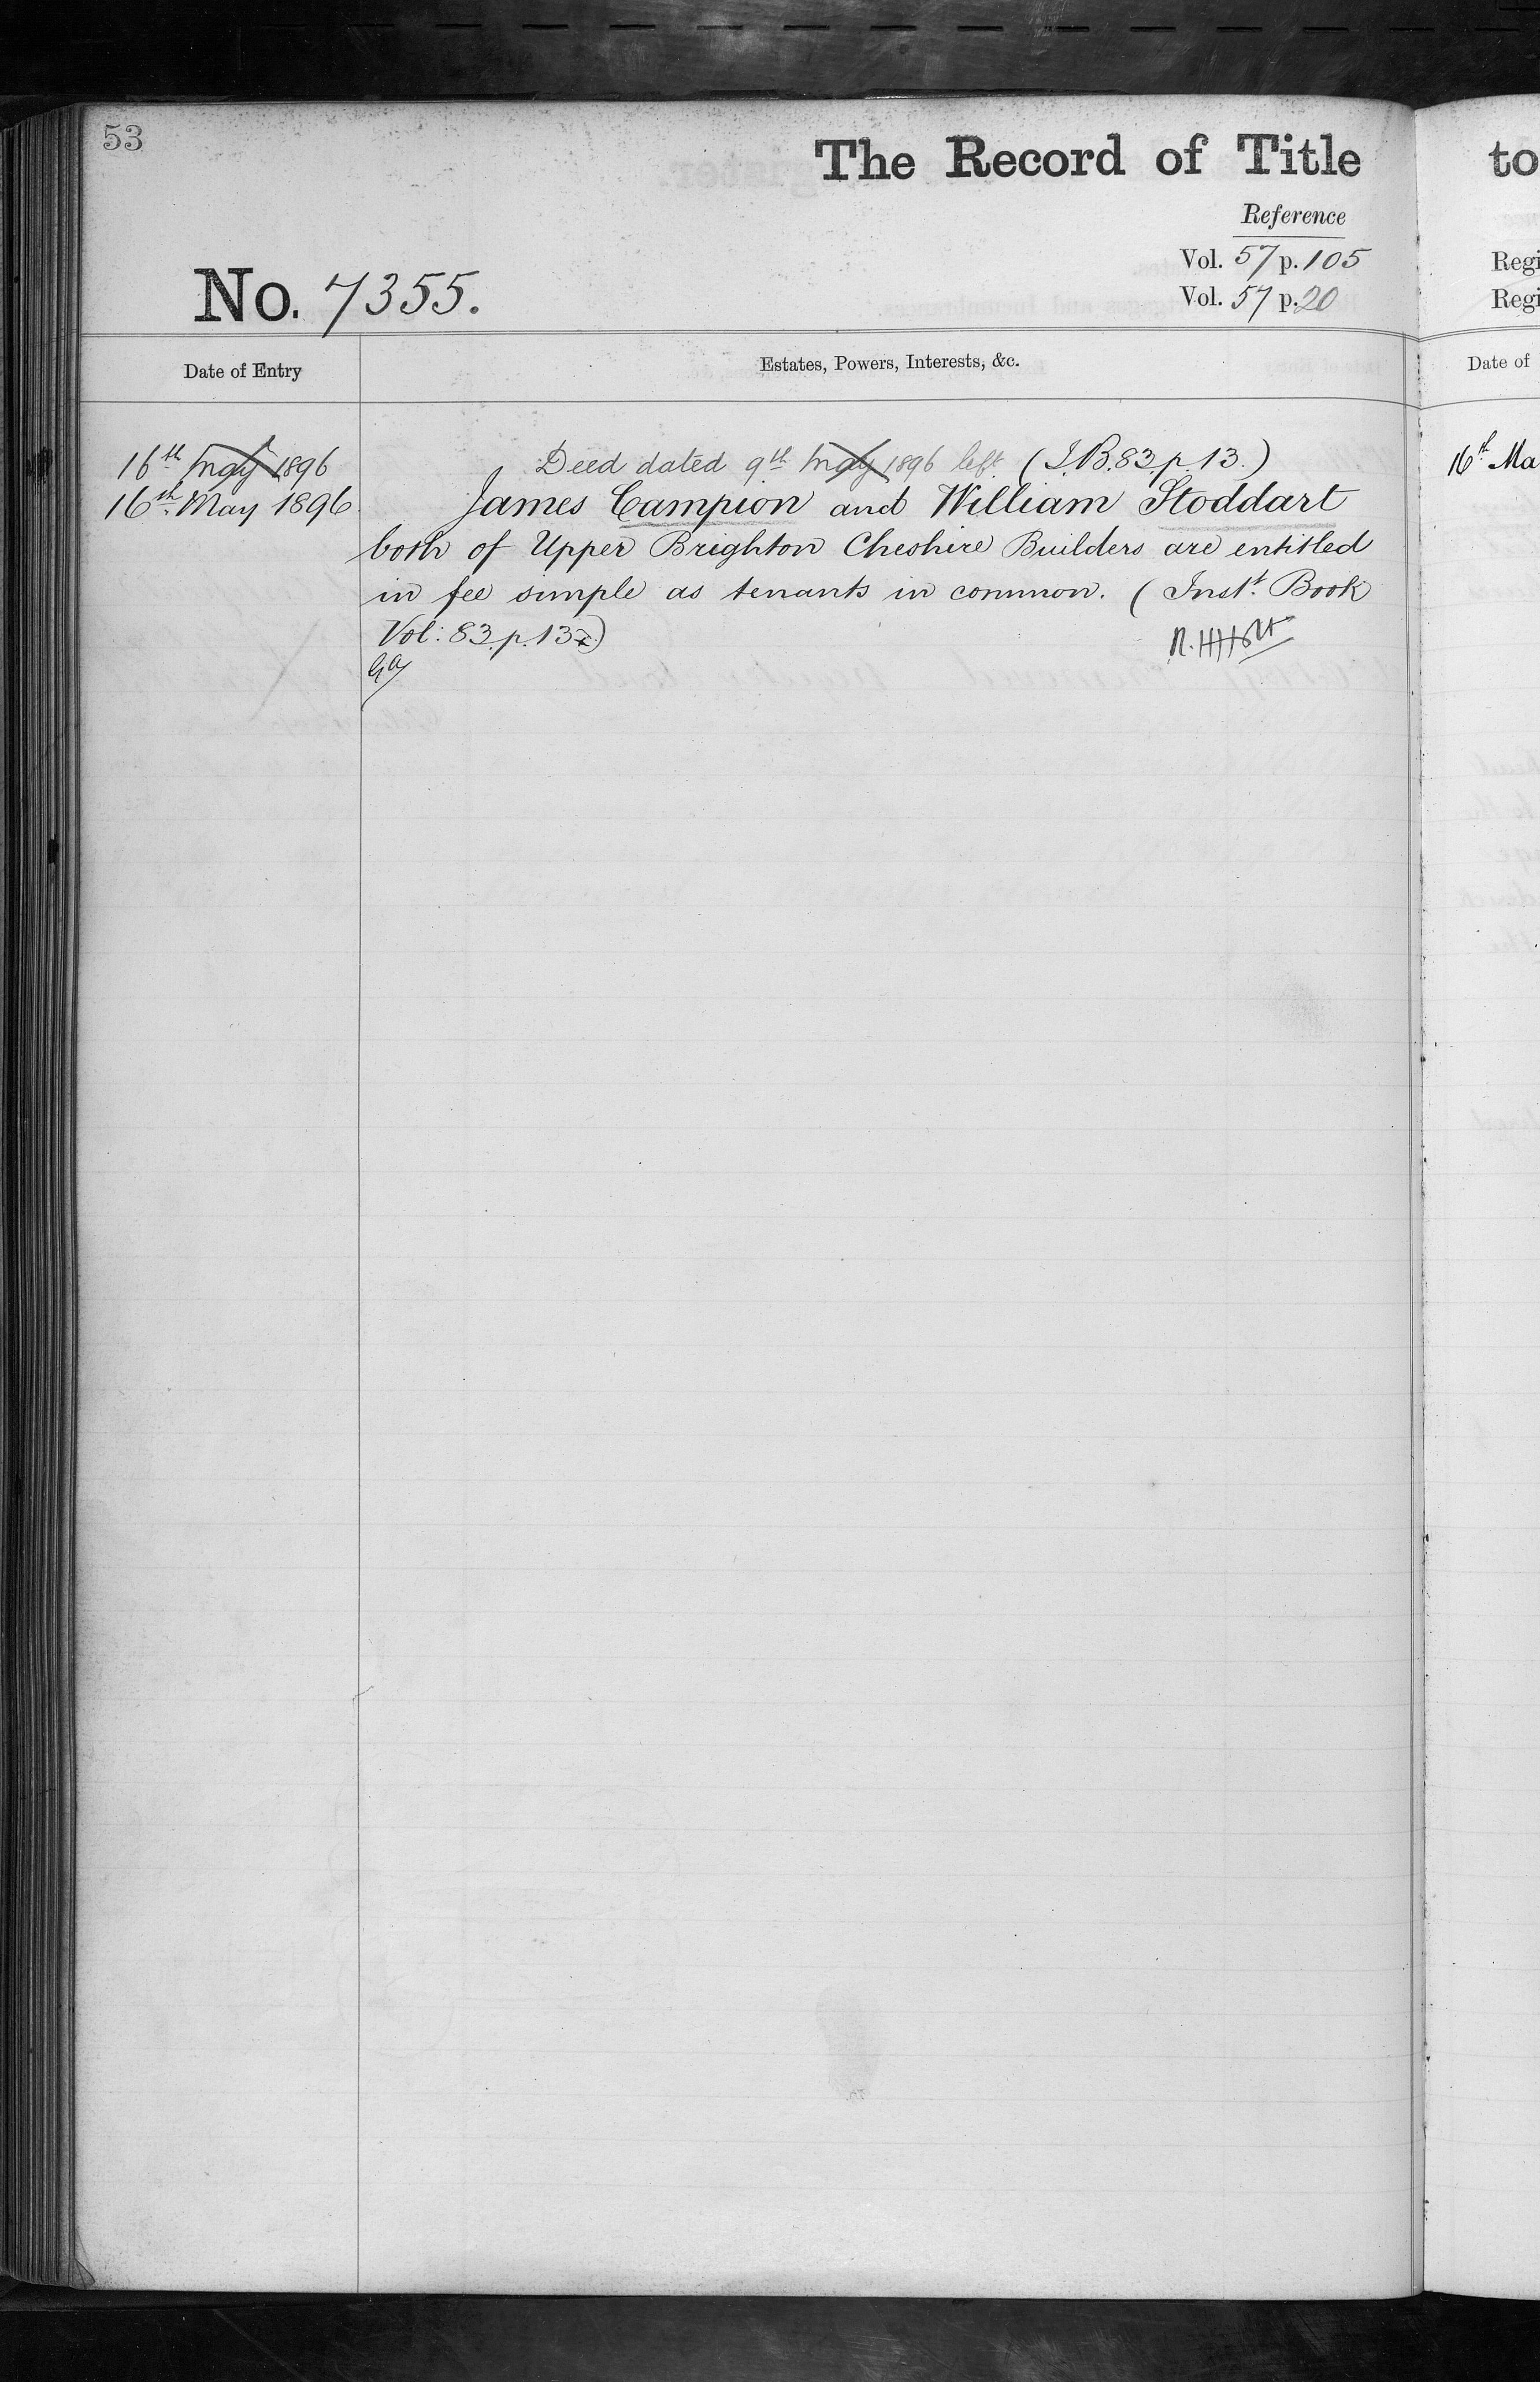 53
The Record of Title
Reference
Vol. 57 p. 105
Vol. 57 p. 20
No. 7355.
Date of Entry
Estates, Powers, Interests, &c.
16th May 1896
Deed dated 9th May 1896 left (I.B. 83. p. 13.)
16th May 1896
James Campion and William Stoddart
both of Upper Brighton Cheshire Builders are entitled
in fee simple as tenants in common. (Inst. Book
Vol: 83. p. 13
to
Regi
Regi
Date of
16th Ma